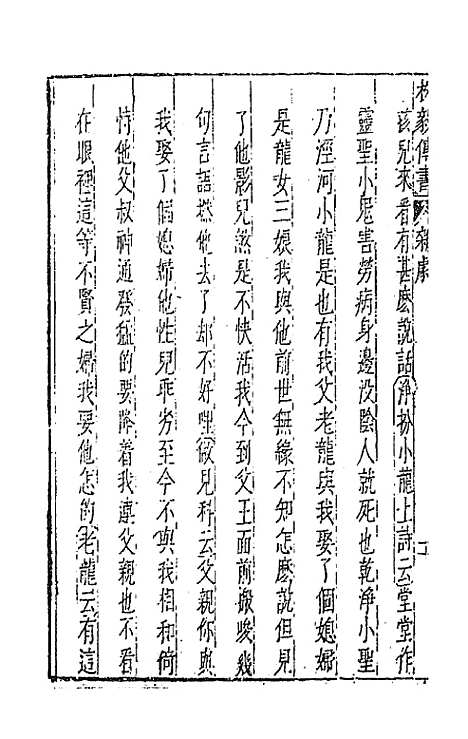 柳毅傳書 雜劇 二
孩兒來看有甚麽說話淨扮小龍上詩云堂堂作
靈聖小鬼害勞病身邊没陰人就死也乾淨小聖
乃涇河小龍是也有我父老龍與我娶了個媳婦
是龍女三娘我與他前世無緣不知怎麽說但見
了他影兒煞是不快活我今到父王面前搬唆幾
句言語撚他去了却不好哩做見科云父親你與
我娶了個媳婦他性兒乖劣至今不與我相和倚
恃他父叔神通發猛的要降着我連父親也不看
在眼裡這等不賢之婦我要他怎的老龍云有這